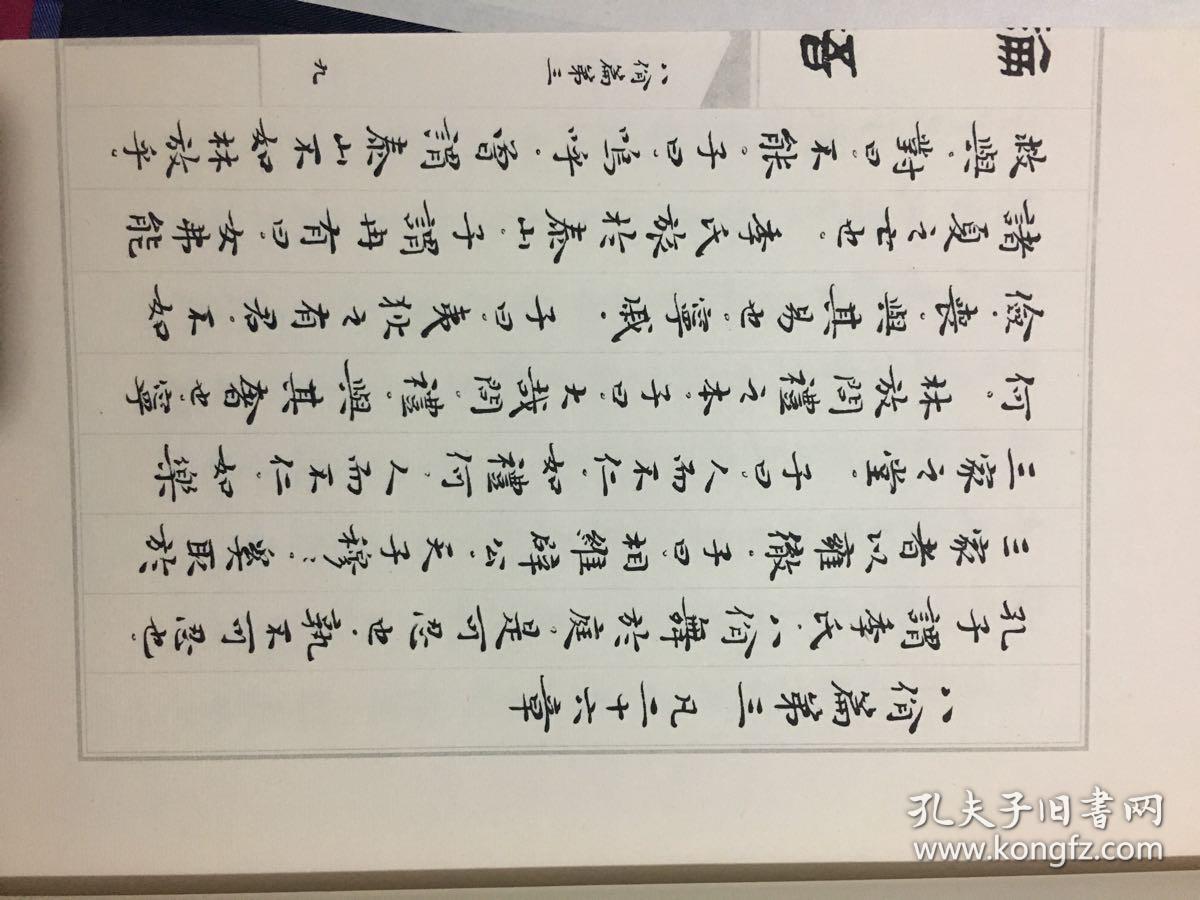 八佾篇第三 凡二十六章
孔子謂季氏.八佾舞於庭.是可忍也.孰不可忍也。
三家者以雍徹.子曰.相維辟公.天子穆:.奚取於
三家之堂. 子曰.人而不仁.如禮何.人而不仁.如樂
何. 林放問禮之本.子曰.大哉問.禮.與其奢也.寧
儉.喪.與其易也.寧戚. 子曰.夷狄之有君.不如
諸夏之亡也. 季氏旅於泰山.子謂冉有曰.女弗能
救與.對曰.不能.子曰.嗚呼.曾謂泰山不如林放乎。
論語
八佾篇第三 九
孔夫子旧书网
www.kongfz.com